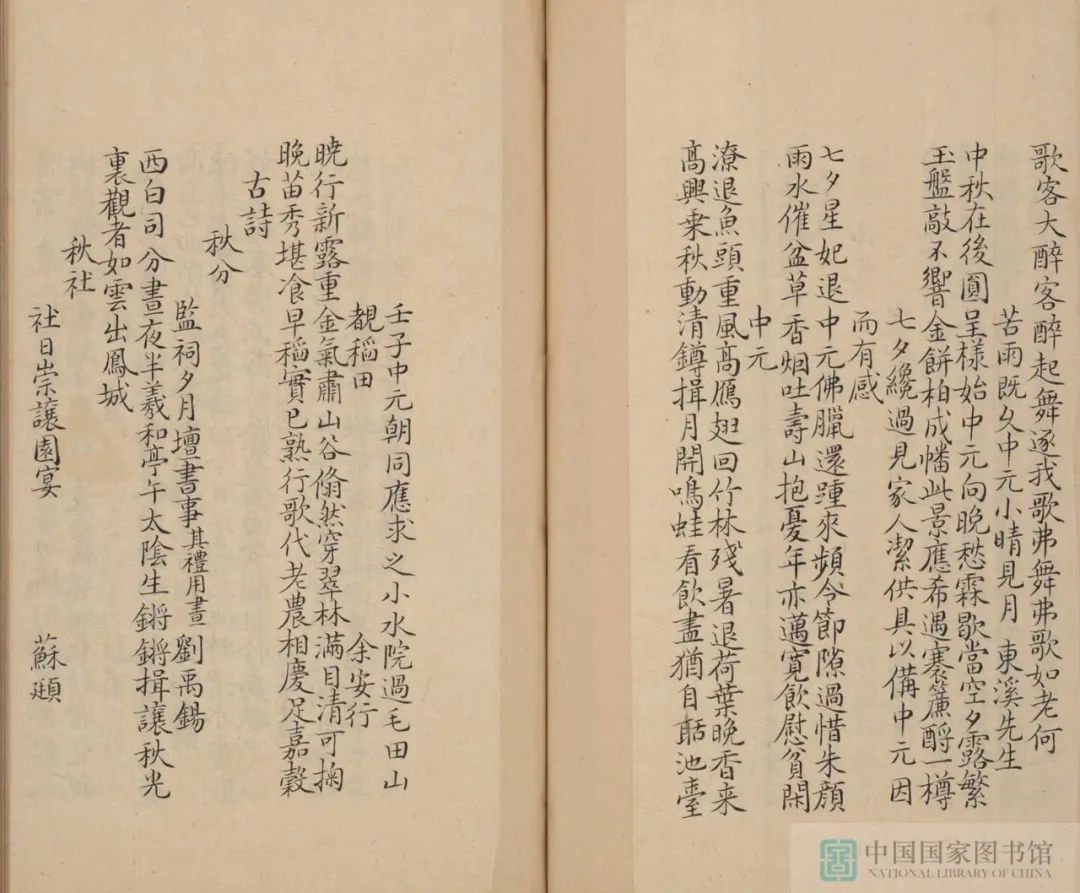 歌客大醉客醉起舞逐我歌弗舞弗歌如老何
苦雨既久中元小晴見月 東溪先生
中秋在後圓呈樣始中元向晚愁霖歇當空夕露繁
玉盤敲不響金餅柏成幡此景應希遇寒簾酹一樽
七夕纔過見家人潔供具以備中元因
而有感
七夕星妃退中元佛臘還踵來頻令節隙過惜朱顏
雨水催盆草香烟吐壽山抱憂年亦邁寬飲慰貧閑
中元
潦退魚頭重風高鴈翅回竹林殘暑退荷葉晚香来
高興乗秋動清鐏揖月開鳴蛙看飲盡猶自聒池臺
壬子中元朝同應求之小水院過毛田山
覩稻田 余安行
曉行新露重金氣肅山谷翛然穿翠林滿目清可掬
晚苗秀堪飡早稻實已熟行歌代老農相慶足嘉穀
古詩
秋分
監祠夕月壇書事其禮用晝 劉禹錫
西白司分晝夜半羲和亭午太陰生鏘鏘揖讓秋光
裏觀者如雲出鳳城
秋社
社日崇讓園宴 蘇頲
中国国家图书馆
NATIONAL LIBRARY OF CHINA